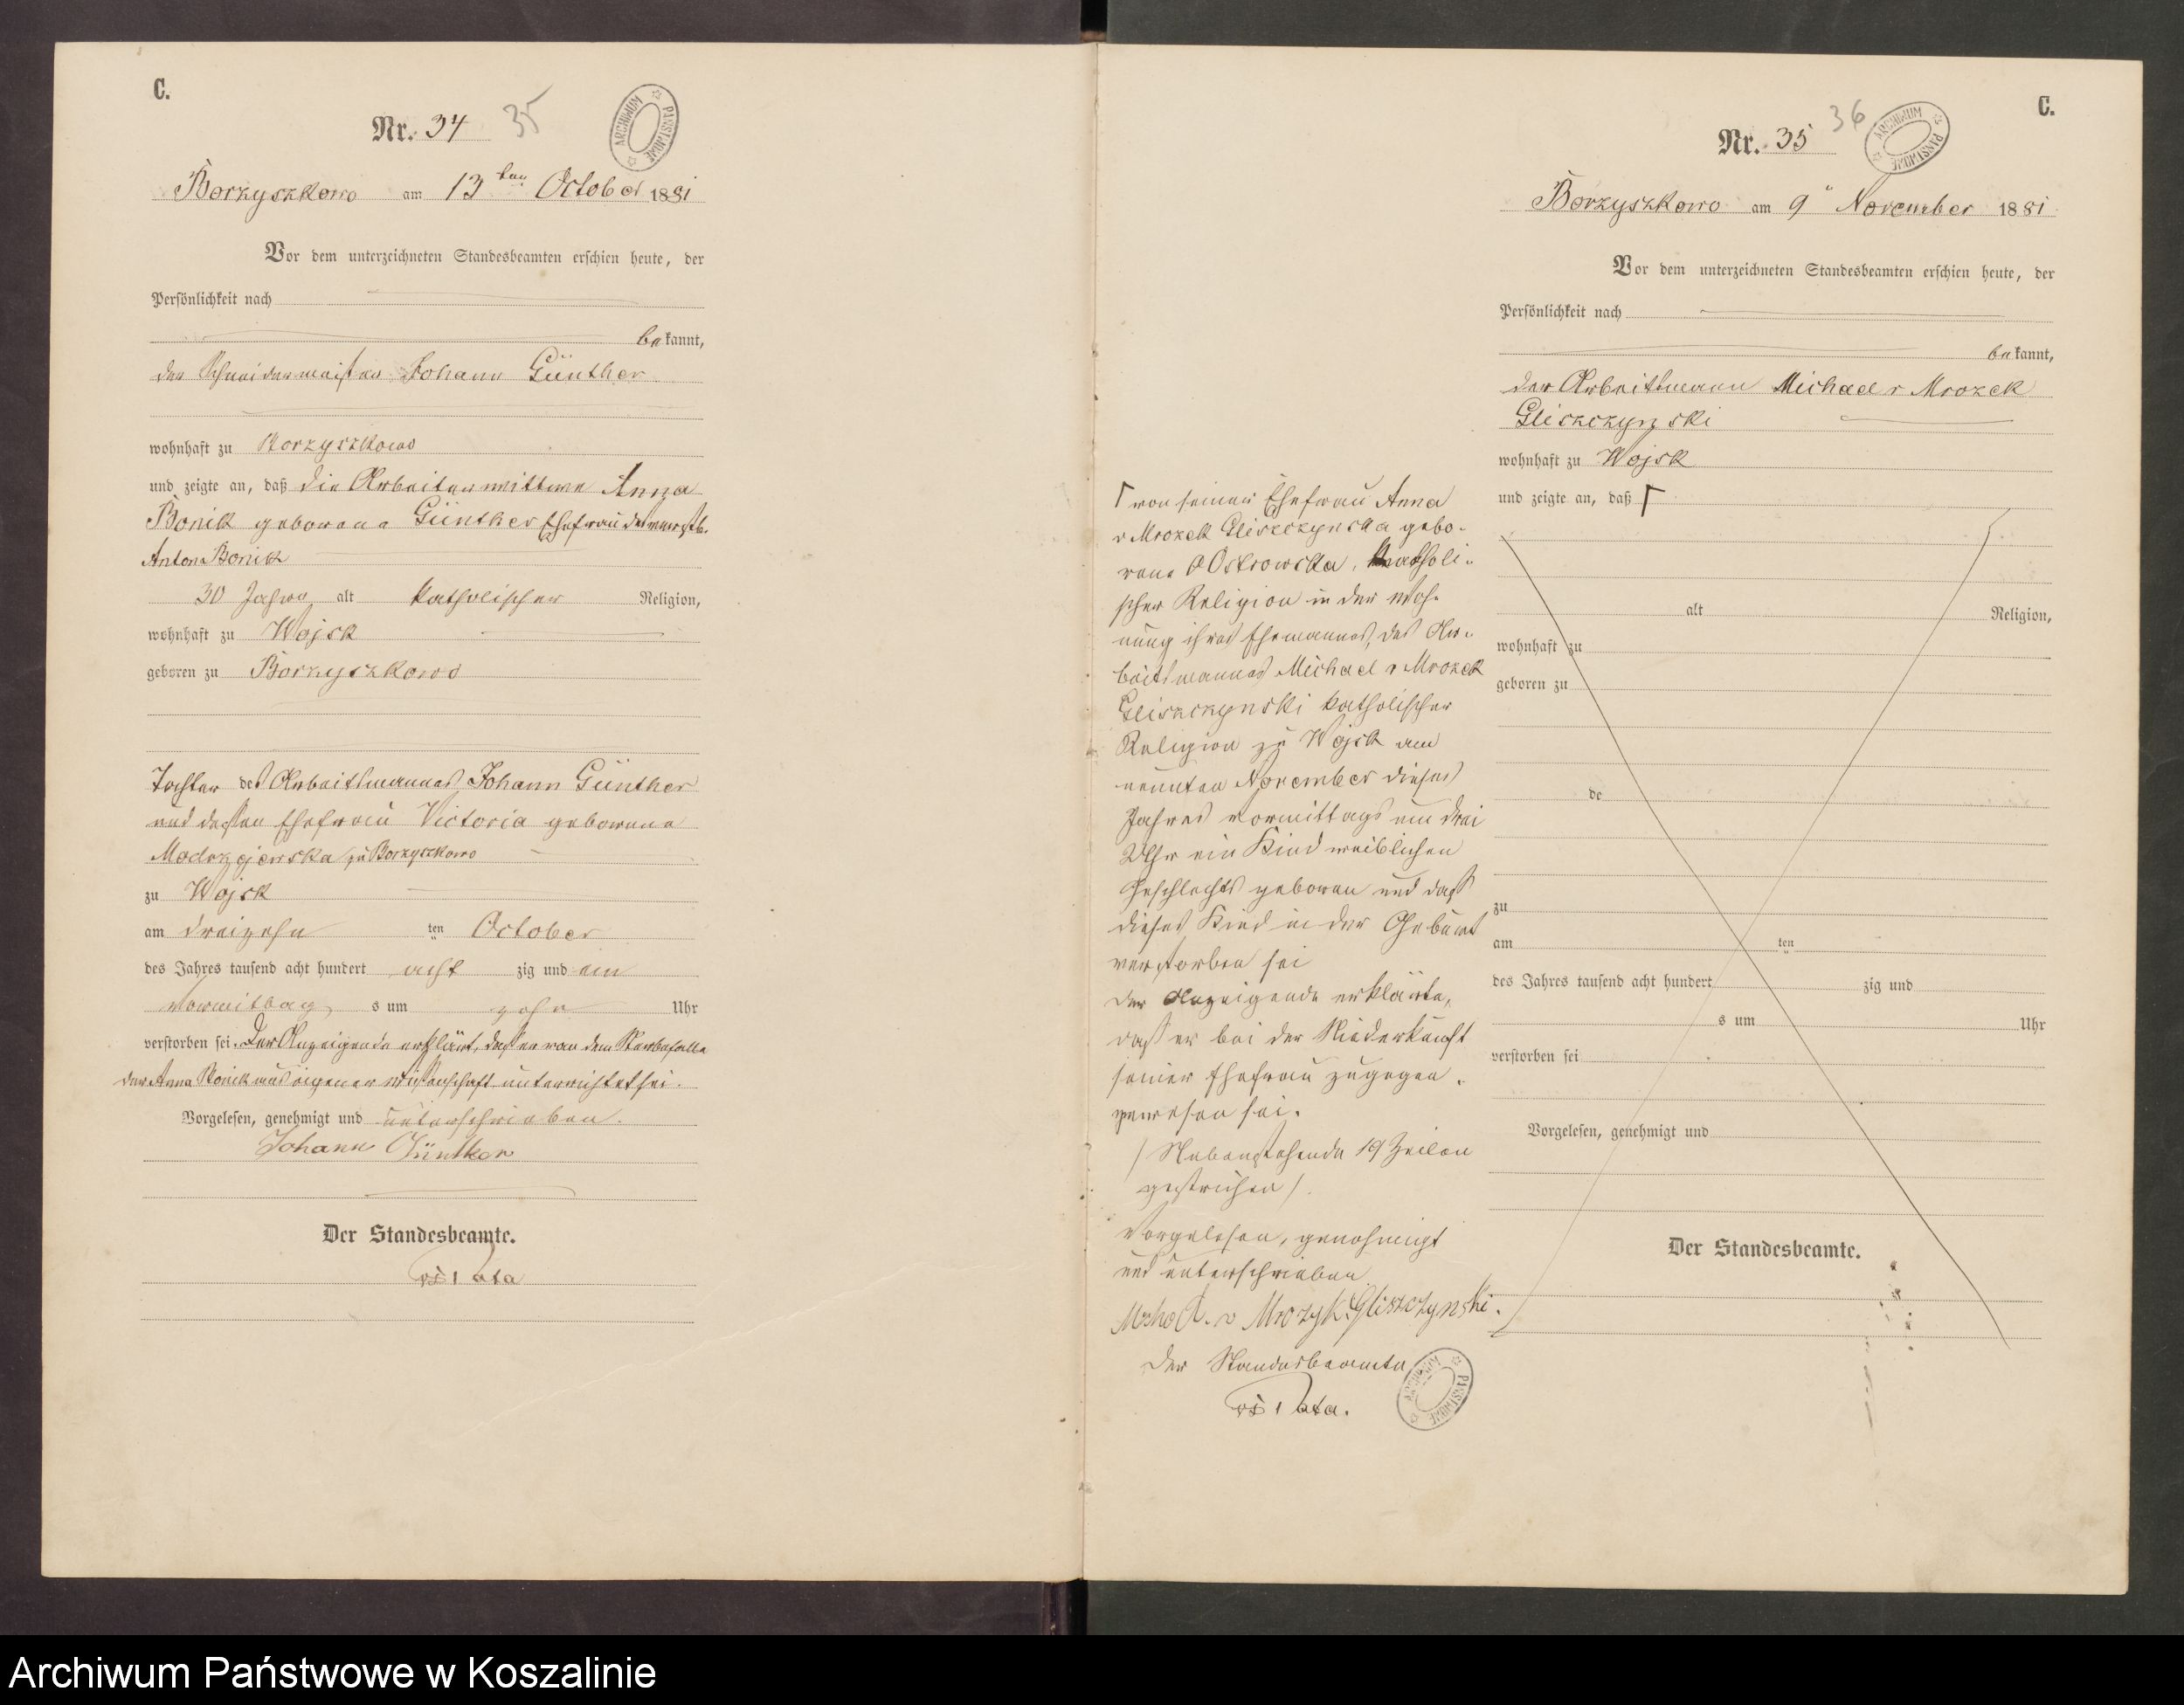 C.
Nr. 34 35
ARCHIWUM PAŃSTWOWE
Borzyszkowo am 13ten October 1881
Vor dem unterzeichneten Standesbeamten erschien heute, der
Persönlichkeit nach
bekannt,
der Schneidermeister Johann Günther
wohnhaft zu Borzyszkowo
und zeigte an, daß die Arbeiterwittwe Anna
Bonik geborene Günther Ehefrau des verstb.
Anton Bonik
30 Jahre alt katholischer Religion,
wohnhaft zu Wojsk
geboren zu Borzyszkowo
Tochter des Arbeitsmannes Johann Günther
und dessen Ehefrau Victoria geborene
Modrzejewska zu Borzyszkowo
zu Wojsk
am dreizehn ten October
des Jahres tausend acht hundert acht zig und ein
Vormittag s um zehn Uhr
verstorben sei. Der Anzeigende erklärt, daß er von dem Sterbefalle
der Anna Bonik aus eigener Wissenschaft unterrichtet sei.
Vorgelesen, genehmigt und unterschrieben.
Johann Günther
Der Standesbeamte.
C.
Nr. 35 36
ARCHIWUM PAŃSTWOWE
Borzyszkowo am 9 November 1881
Vor dem unterzeichneten Standesbeamten erschien heute, der
Persönlichkeit nach
bekannt,
der Arbeitsmann Michael v Mrozek
Gliszczynski
wohnhaft zu Wojsk
und zeigte an, daß Γ
alt Religion,
wohnhaft zu
geboren zu
de
zu
am ten
des Jahres tausend acht hundert zig und
s um Uhr
verstorben sei
Vorgelesen, genehmigt und
Der Standesbeamte.
Γ von seiner Ehefrau Anna
v Mrozek Gliszczynska gebo-
rene Ostrowska, katholi-
scher Religion in der Woh-
nung ihres Ehemannes, des Ar-
beitsmannes Michael v Mrozek
Gliszczynski katholischer
Religion zu Wojsk am
neunten November dieses
Jahres vormittags um drei
Uhr ein Kind weiblichen
Geschlechts geboren und daß
dieses Kind in der Geburt
verstorben sei
Der Anzeigende erklärte,
daß er bei der Niederkunft
seiner Ehefrau zugegen
gewesen sei.
/ Nebenstehende 19 Zeilen
gestrichen /.
Vorgelesen, genehmigt
und unterschrieben
v Mrozyk Gliszczynski.
Der Standesbeamte
ARCHIWUM PAŃSTWOWE
Archiwum Państwowe w Koszalinie